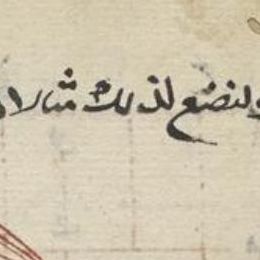 ولنضع لذلك مثالا